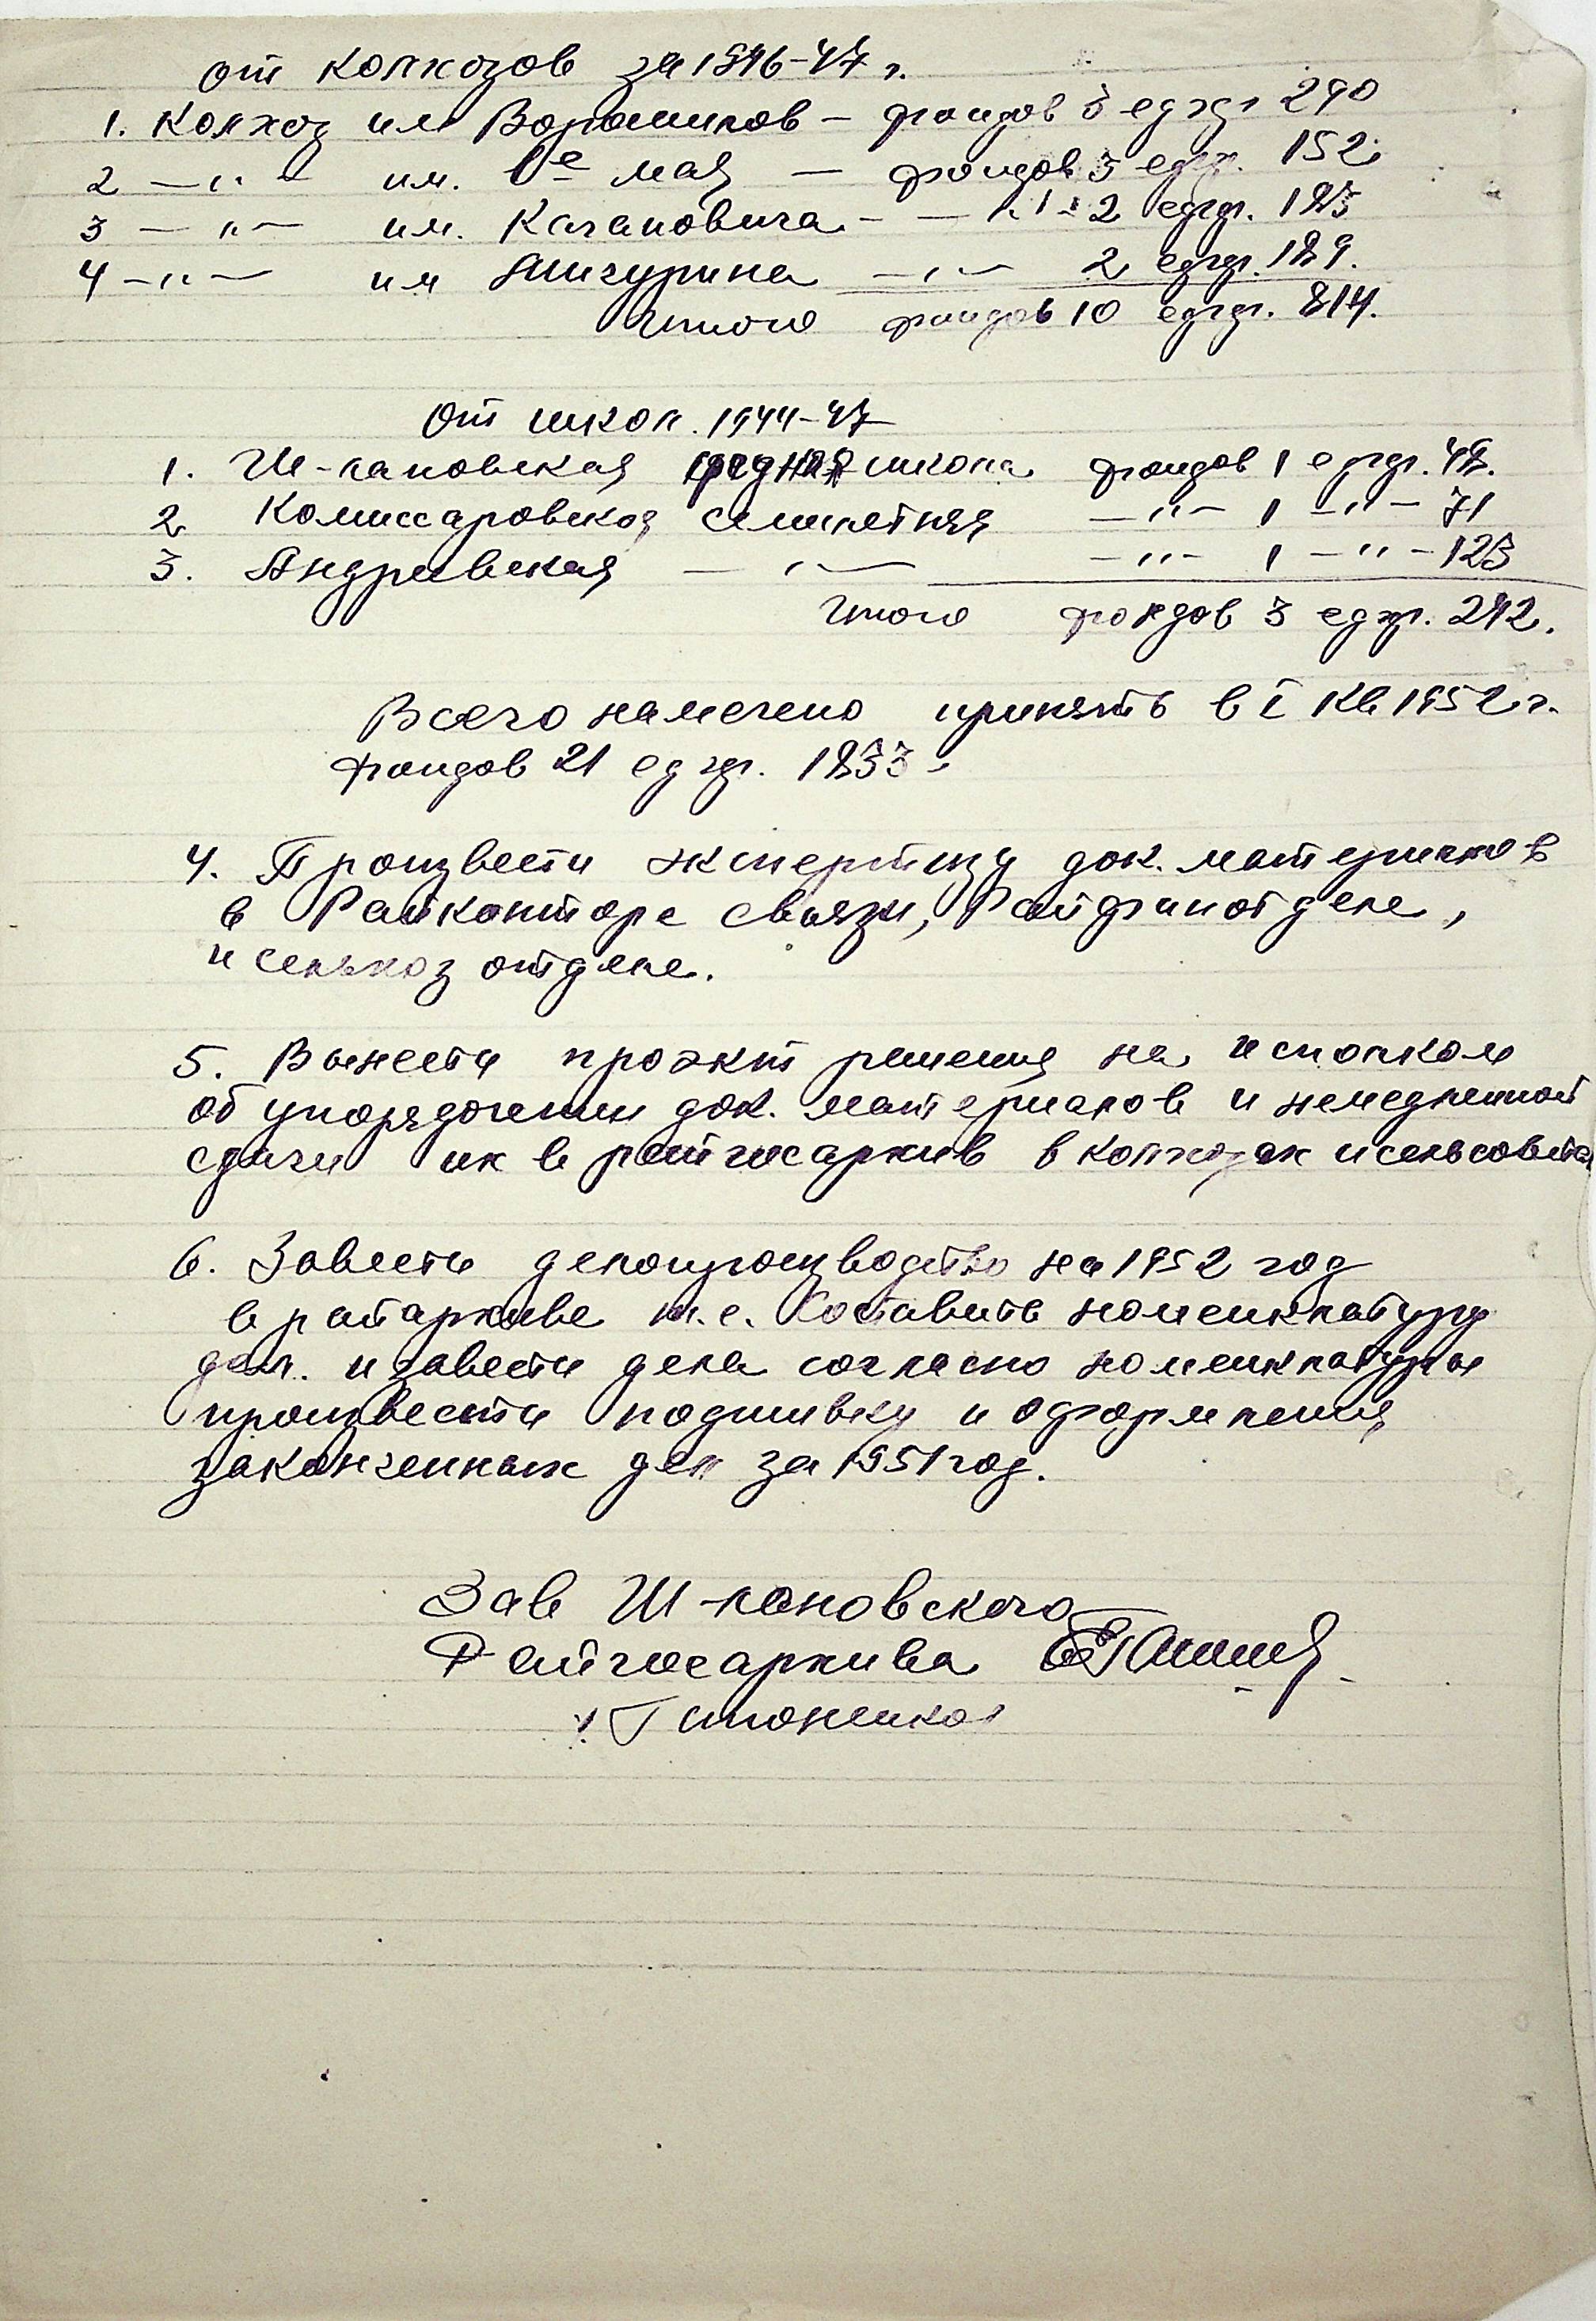 от колхозов за 1946-47 г.
1. Колхоз им Ворошилов – фондов 3 ед хр 290
2 —〃— им. 1е мая — фондов 3 едхр. 152
3 —〃— им. Кагановича — —〃— 2 едхр. 183
4 —〃— им Мичурина —〃— 2 едхр. 189.
Итого фондов 10 едхр. 814.
От школ. 1944-47
1. Ш-лановская средняя школа фондов 1 едхр. 48.
2 Комиссаровская семилетняя —〃— 1 —〃— 71
3. Андреевская —〃— —〃— 1 —〃— 123
Итого фондов 3 едхр. 242.
Всего намечено принять в I кв 1952 г.
фондов 21 ед хр. 1833
4. Произвести экспертизу док. материалов
в Райконторе связи, Райфинотделе,
и сельхозотделе.
5. Вынести проэкт решения на исполком
об упорядочении док. материалов и немедленной
сдачи их в райгосархив в колхозах и сельсовета
6. Завести делопроизводство на 1952 год
в райархиве т.е. Составить номенклатуру
дел. и завести дела согласно номенклатуры
произвести подшивку и оформления
законченных дел за 1951 год.
Зав Ш-лановского
Райгосархива